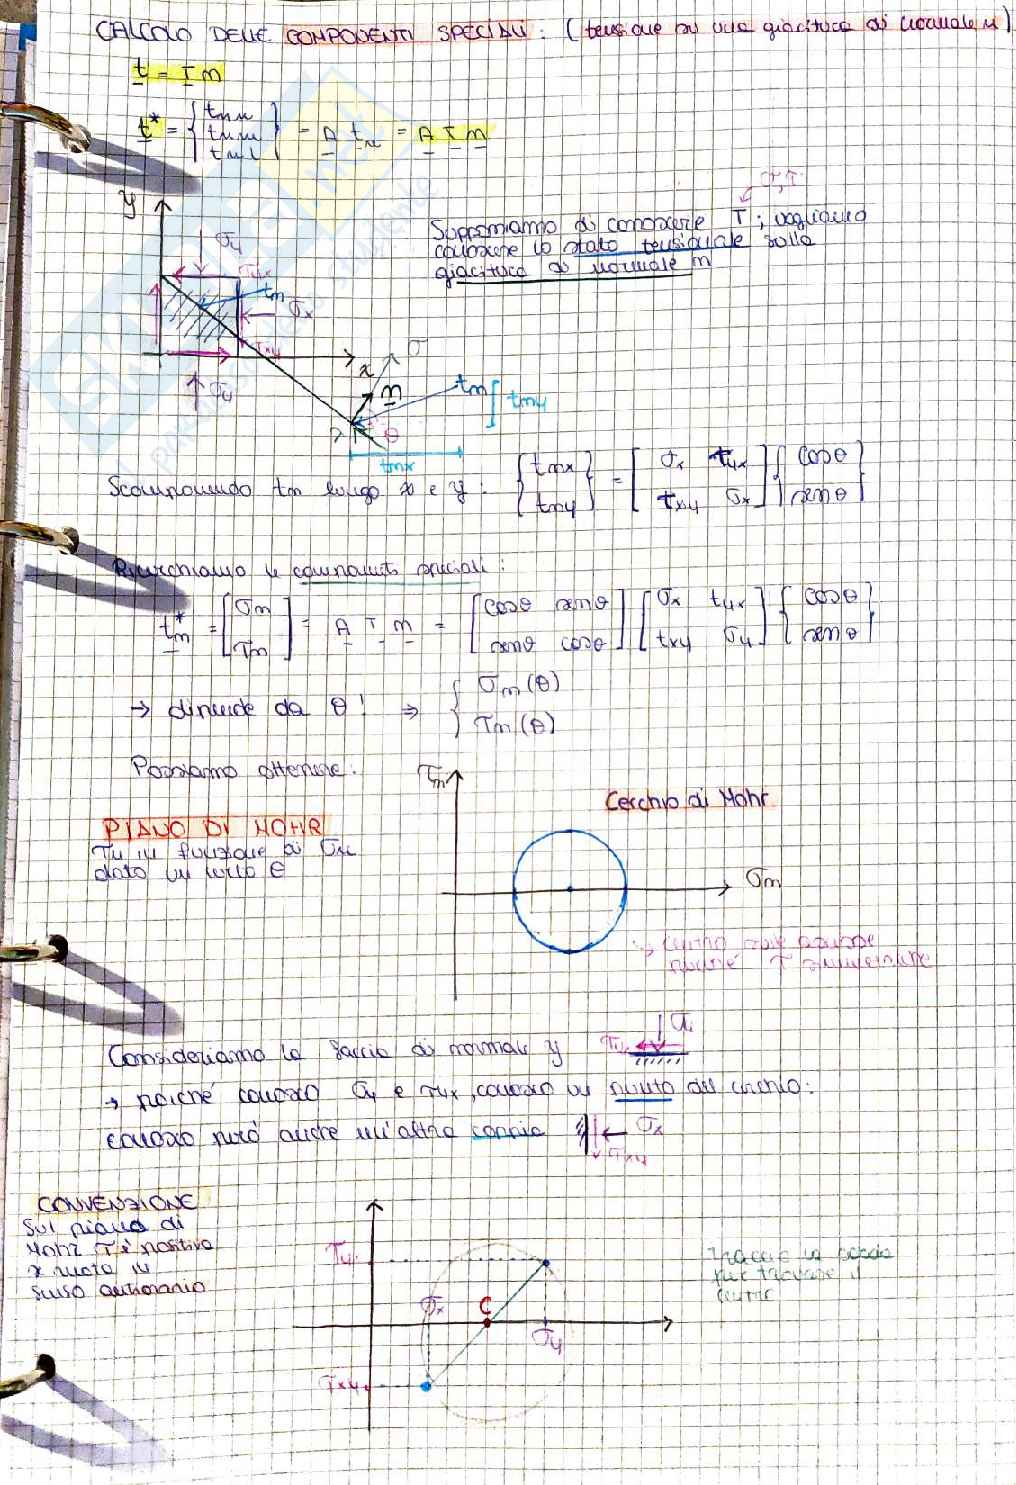 CALCOLO DELLE COMPONENTI SPECIALI: (tensione su una giacitura di normale n)
t = T n
t* = { tnn tnm tnl } = A tn = A T n
σ, τ
y
Supponiamo di conoscere T; vogliamo
conoscere lo stato tensionale sulla
giacitura di normale n
σy
τyx
tn
σx
τxy
x
σ
n
σy
tn
tny
θ
tnx
Scomponendo tn lungo x e y: { tnx tny } = [ σx τyx τxy σx ] { cosθ senθ }
Ricerchiamo le componenti speciali:
tn* = [ σn τn ] = A T n = [ cosθ senθ senθ cosθ ] [ σx τyx τxy σy ] { cosθ senθ }
→ dipende da θ! ⇒ { σn(θ) τn(θ)
Possiamo ottenere:
τn
Cerchio di Mohr
PIANO DI MOHR
τn in funzione di σn
dato un certo θ
σn
→ centro asse
perché T simmetrica
Consideriamo la faccia di normale y
→ poiché conosco σy e τyx, conosco un punto del cerchio:
conosco però anche un'altra coppia
σx
τxy
CONVENZIONE
Sul piano di
Mohr τ è positivo
x ruota in
senso antiorario
τy
σx
C
σy
τxy
traccio la corda
per trovare il
centro